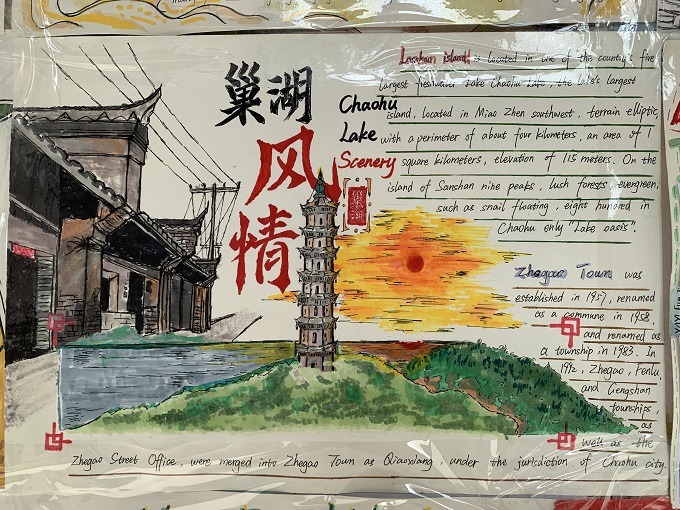 巢湖
风
情
Chaohu
Lake
Scenery
巢湖
Laoshan island is located in one of this country's five
largest freshwater Lake Chaohu Lake, the late's largest
island, located in Miao Zhen southwest, terrain elliptic,
with a perimeter of about four kilometers, an area of 1
square kilometers, elevation of 115 meters. On the
island of Sanshan nine peaks, lush forests, evergreen,
such as snail floating, eight hundred in
Chaohu only "Lake oasis".
Zhegao Town was
established in 1957, renamed
as a commune in 1958,
and renamed as
a township in 1983. In
1992, Zhegao, Fenlu,
and Liengshan
townships,
as
well as the
Zhegao Street Office, were merged into Zhegao Town as Qiaoxiang, under the jurisdiction of Chaohu city.